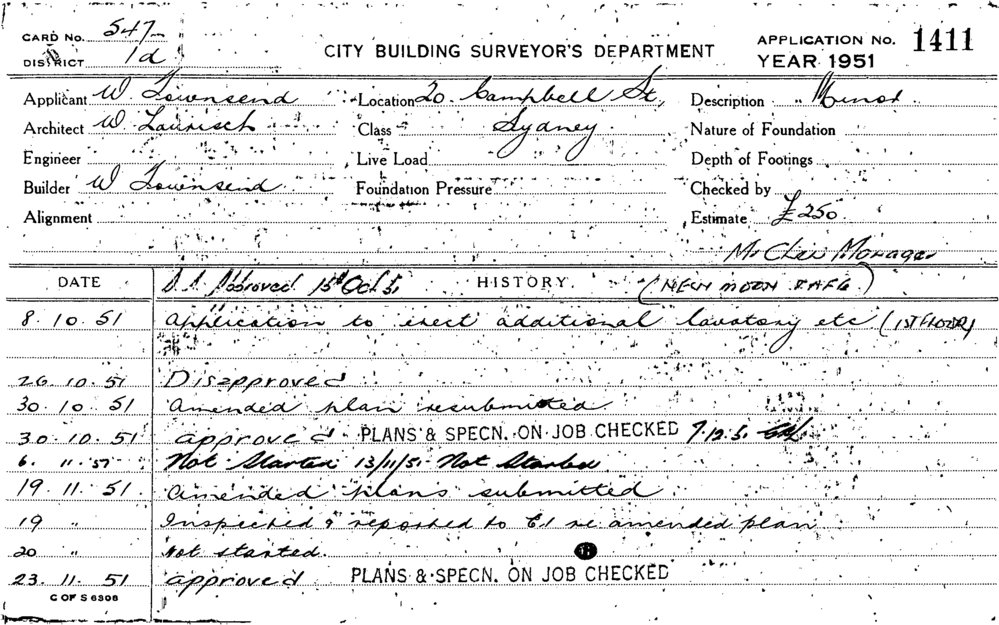 CARD No. 547
DISTRICT 1d
CITY BUILDING SURVEYOR'S DEPARTMENT
APPLICATION No. 1411
YEAR 1951
Applicant W Townsend Location 20 Campbell St, Description Minor
Architect W Class Sydney Nature of Foundation
Engineer Live Load Depth of Footings
Builder W Townsend Foundation Pressure Checked by
Alignment Estimate £250
DATE Approved 15th Oct 51 HISTORY
8.10.51 Application to erect additional lavatory etc (1ST FLOOR)
26.10.51 Disapproved
30.10.51 Amended plan resubmitted
30.10.51 approved PLANS & SPECN. ON JOB CHECKED 7.12.51
6. 11.51 Not Started 13/11/51 Not Started
19.11.51 Amended plans submitted
19 " Inspected & reported to re amended plan
20 " Not started.
23.11.51 approved PLANS & SPECN. ON JOB CHECKED
C OF S 6306